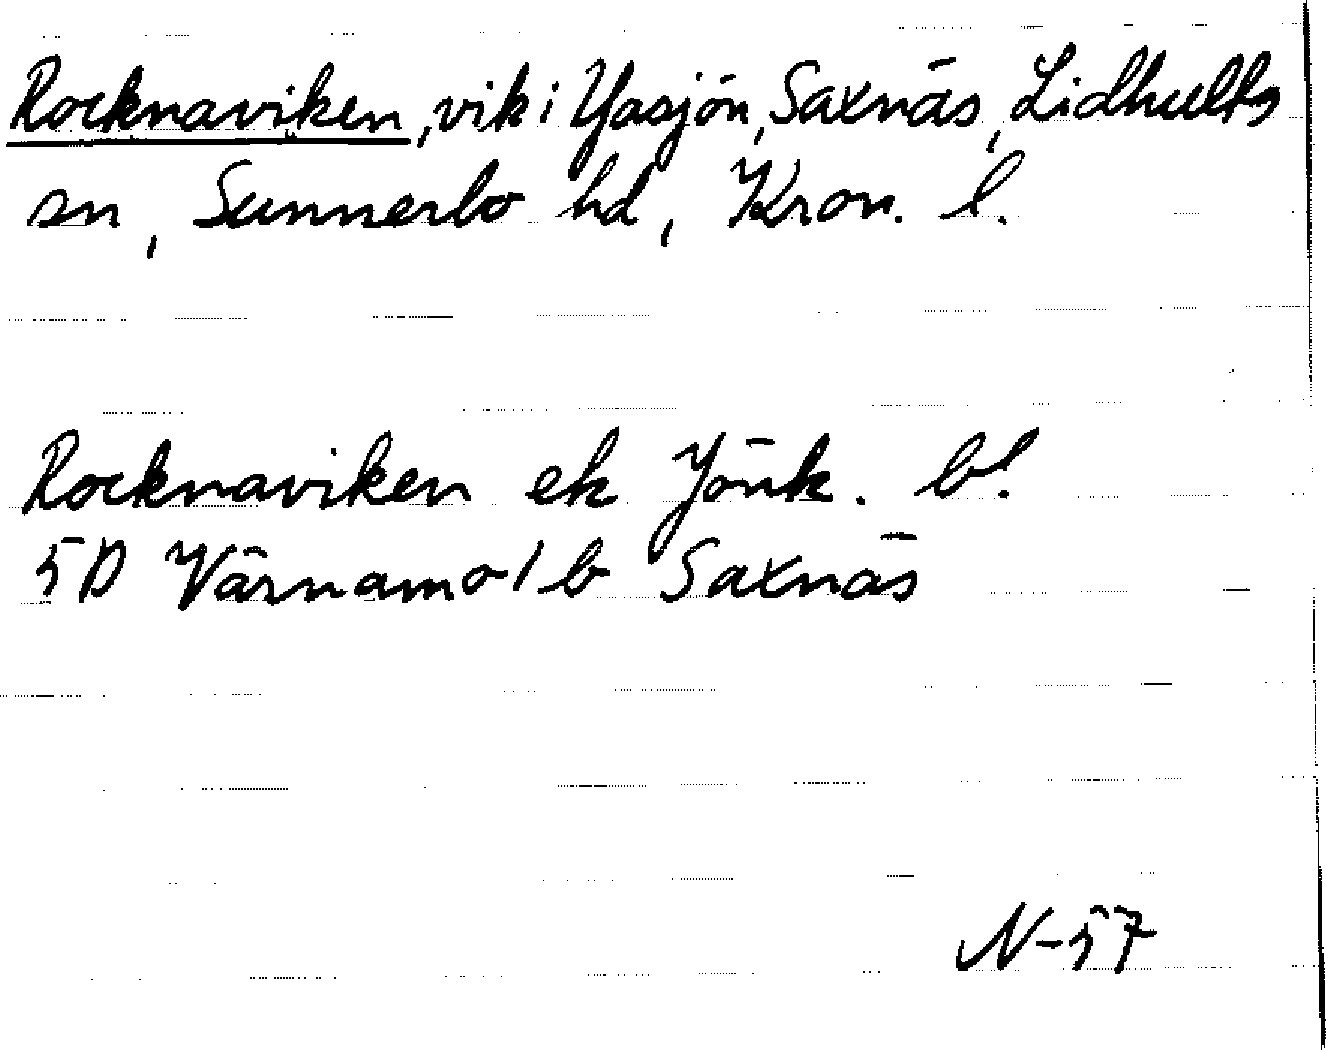 Rocknaviken, vik i Yasjön, Saxnäs, Lidhults
sn, Sunnerbo hd, Kron. l.
Rocknaviken ek Jönk. bl.
5D Värnamo 1b Saxnäs
N-57